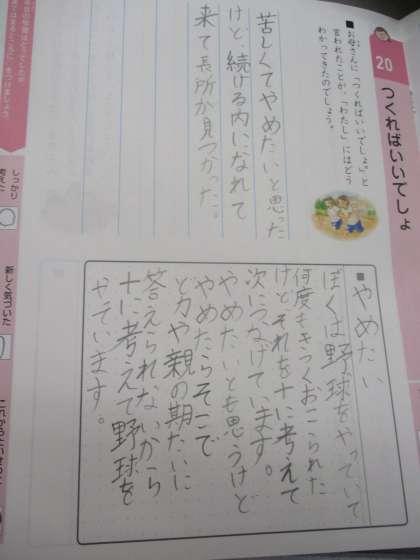 20 つくればいいでしょ
■お母さんに「つくればいいでしょ。」と
言われたことが、「わたし」にはどう
わかってきたのでしょう。
苦しくてやめたいと思った
けど、続ける内になれて
来て長所が見つかった。
■やめたい
ぼくは野球をやっていて
何度もきつくおこられた
けどそれを十に考えて
次につなげています。
やめたいとも思うけど
やめたらそこで
と力や親の期たいに
答えられないから
十に考えて野球を
やています。
しっかり
考えた
新しく気づいた